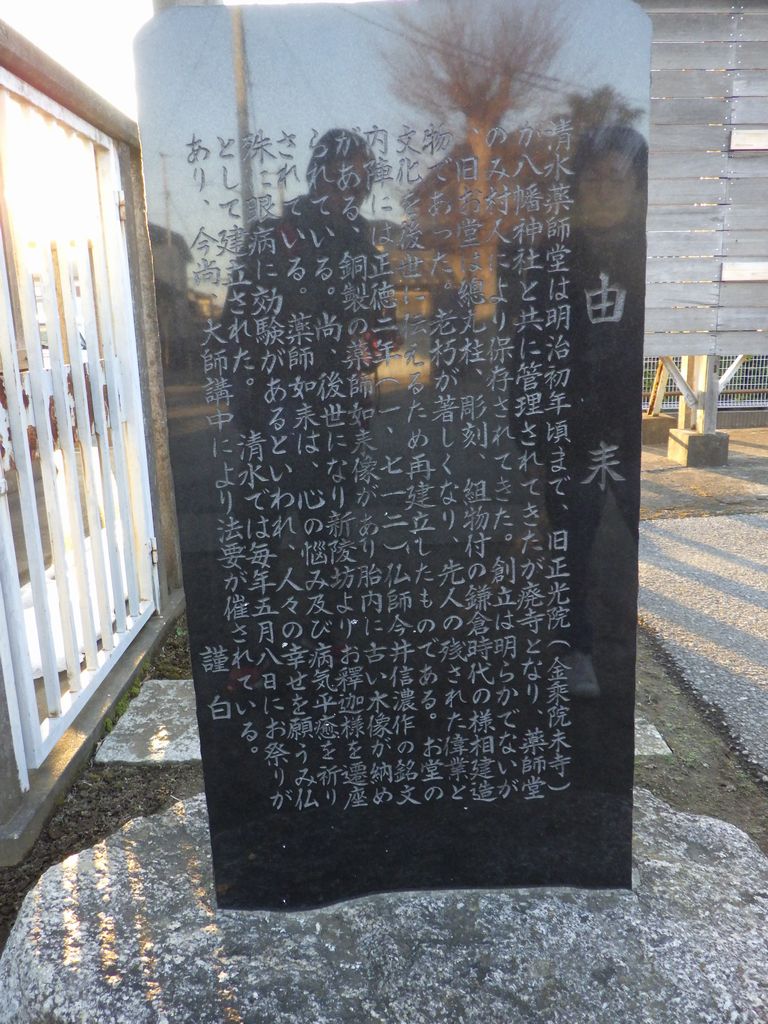 由来
清水薬師堂は明治初年頃まで、旧正光院(金乘院末寺)
が八幡神社と共に管理されてきたが廃寺となり、薬師堂
のみ村人により保存されてきた。創立は明らかでないが
、旧お堂は總丸柱、彫刻、組物付の鎌倉時代の様相建造
物であった。老朽が著しくなり、先人の残された偉業と
文化を後世に伝えるため再建立したものである。お堂の
内陣には正徳二年(一、七一二)仏師今井信濃作の銘文
がある、銅製の薬師如来像があり胎内に古い木像が納め
られている。尚、後世になり新陵坊よりお釋迦様を遷座
されている。薬師如来は、心の悩み及び病気平癒を祈り
殊に眼病に効験があるといわれ、人々の幸せを願うみ仏
として建立された。清水では毎年五月八日にお祭りが
あり、今尚、大師講中により法要が催されている。
謹白